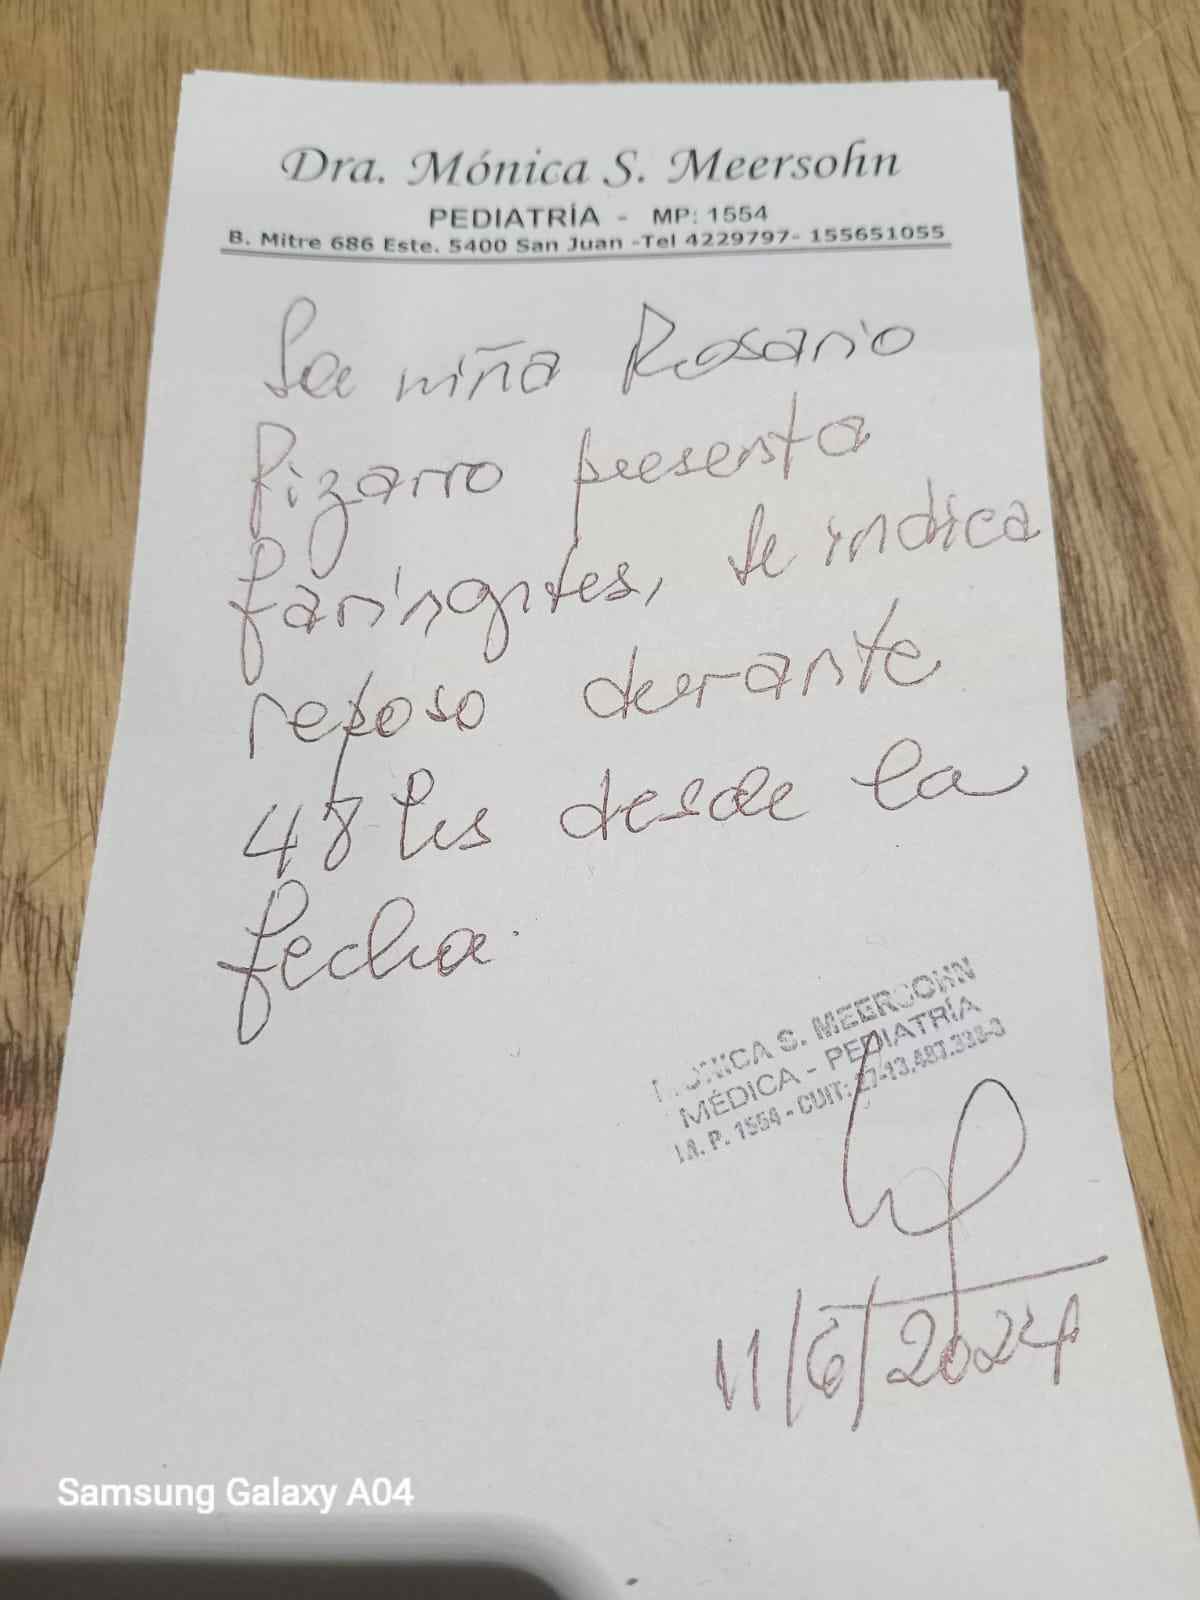 Dra. Mónica S. Meersohn
PEDIATRÍA - MP: 1554
B. Mitre 686 Este. 5400 San Juan -Tel 4229797- 155651055
La niña Rosario
Pizarro presenta
faringites, se indica
reposo durante
48 hs desde la
fecha.
MÓNICA S. MEERSOHN
MÉDICA - PEDIATRÍA
M. P. 1554 - CUIT: 27-13.487.338-3
11/6/2024
Samsung Galaxy A04